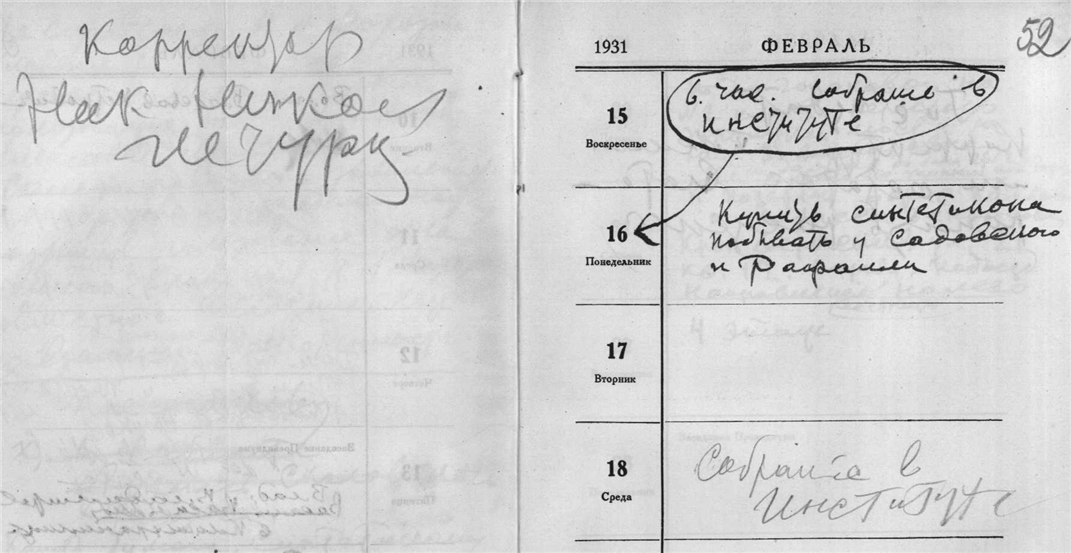 Корректор
Ник Никол
Печурк
1931 ФЕВРАЛЬ 52
15
Воскресенье
6. час собрание в
институте
16
Понедельник
Купить синтетикона
побывать у Садовского
и Рафаили
17
Вторник
18
Среда
Собрание в
институте